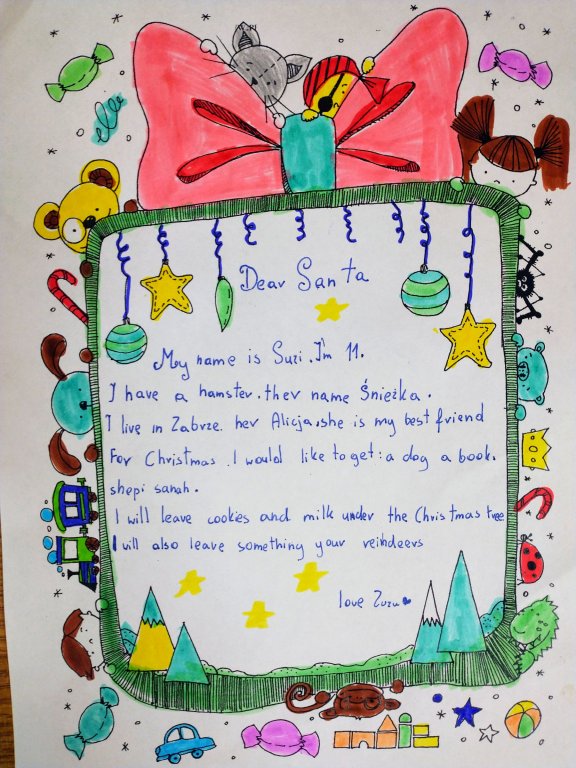 Dear Santa
My name is Suzi. I'm 11.
I have a hamster. ther name Śnieżka.
I live in Zabrze. her Alicja. she is my best friend
For Christmas. I would like to get: a dog a book.
shepi sanah.
I will leave cookies and milk under the Christmas tree
I will also leave something your reindeers
love Zuzu